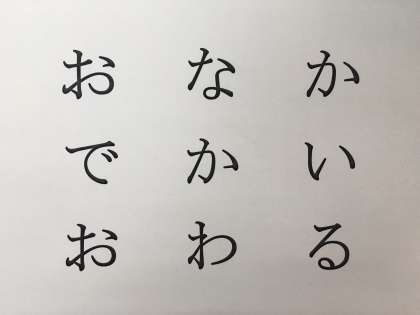 おなか
でかい
おわる